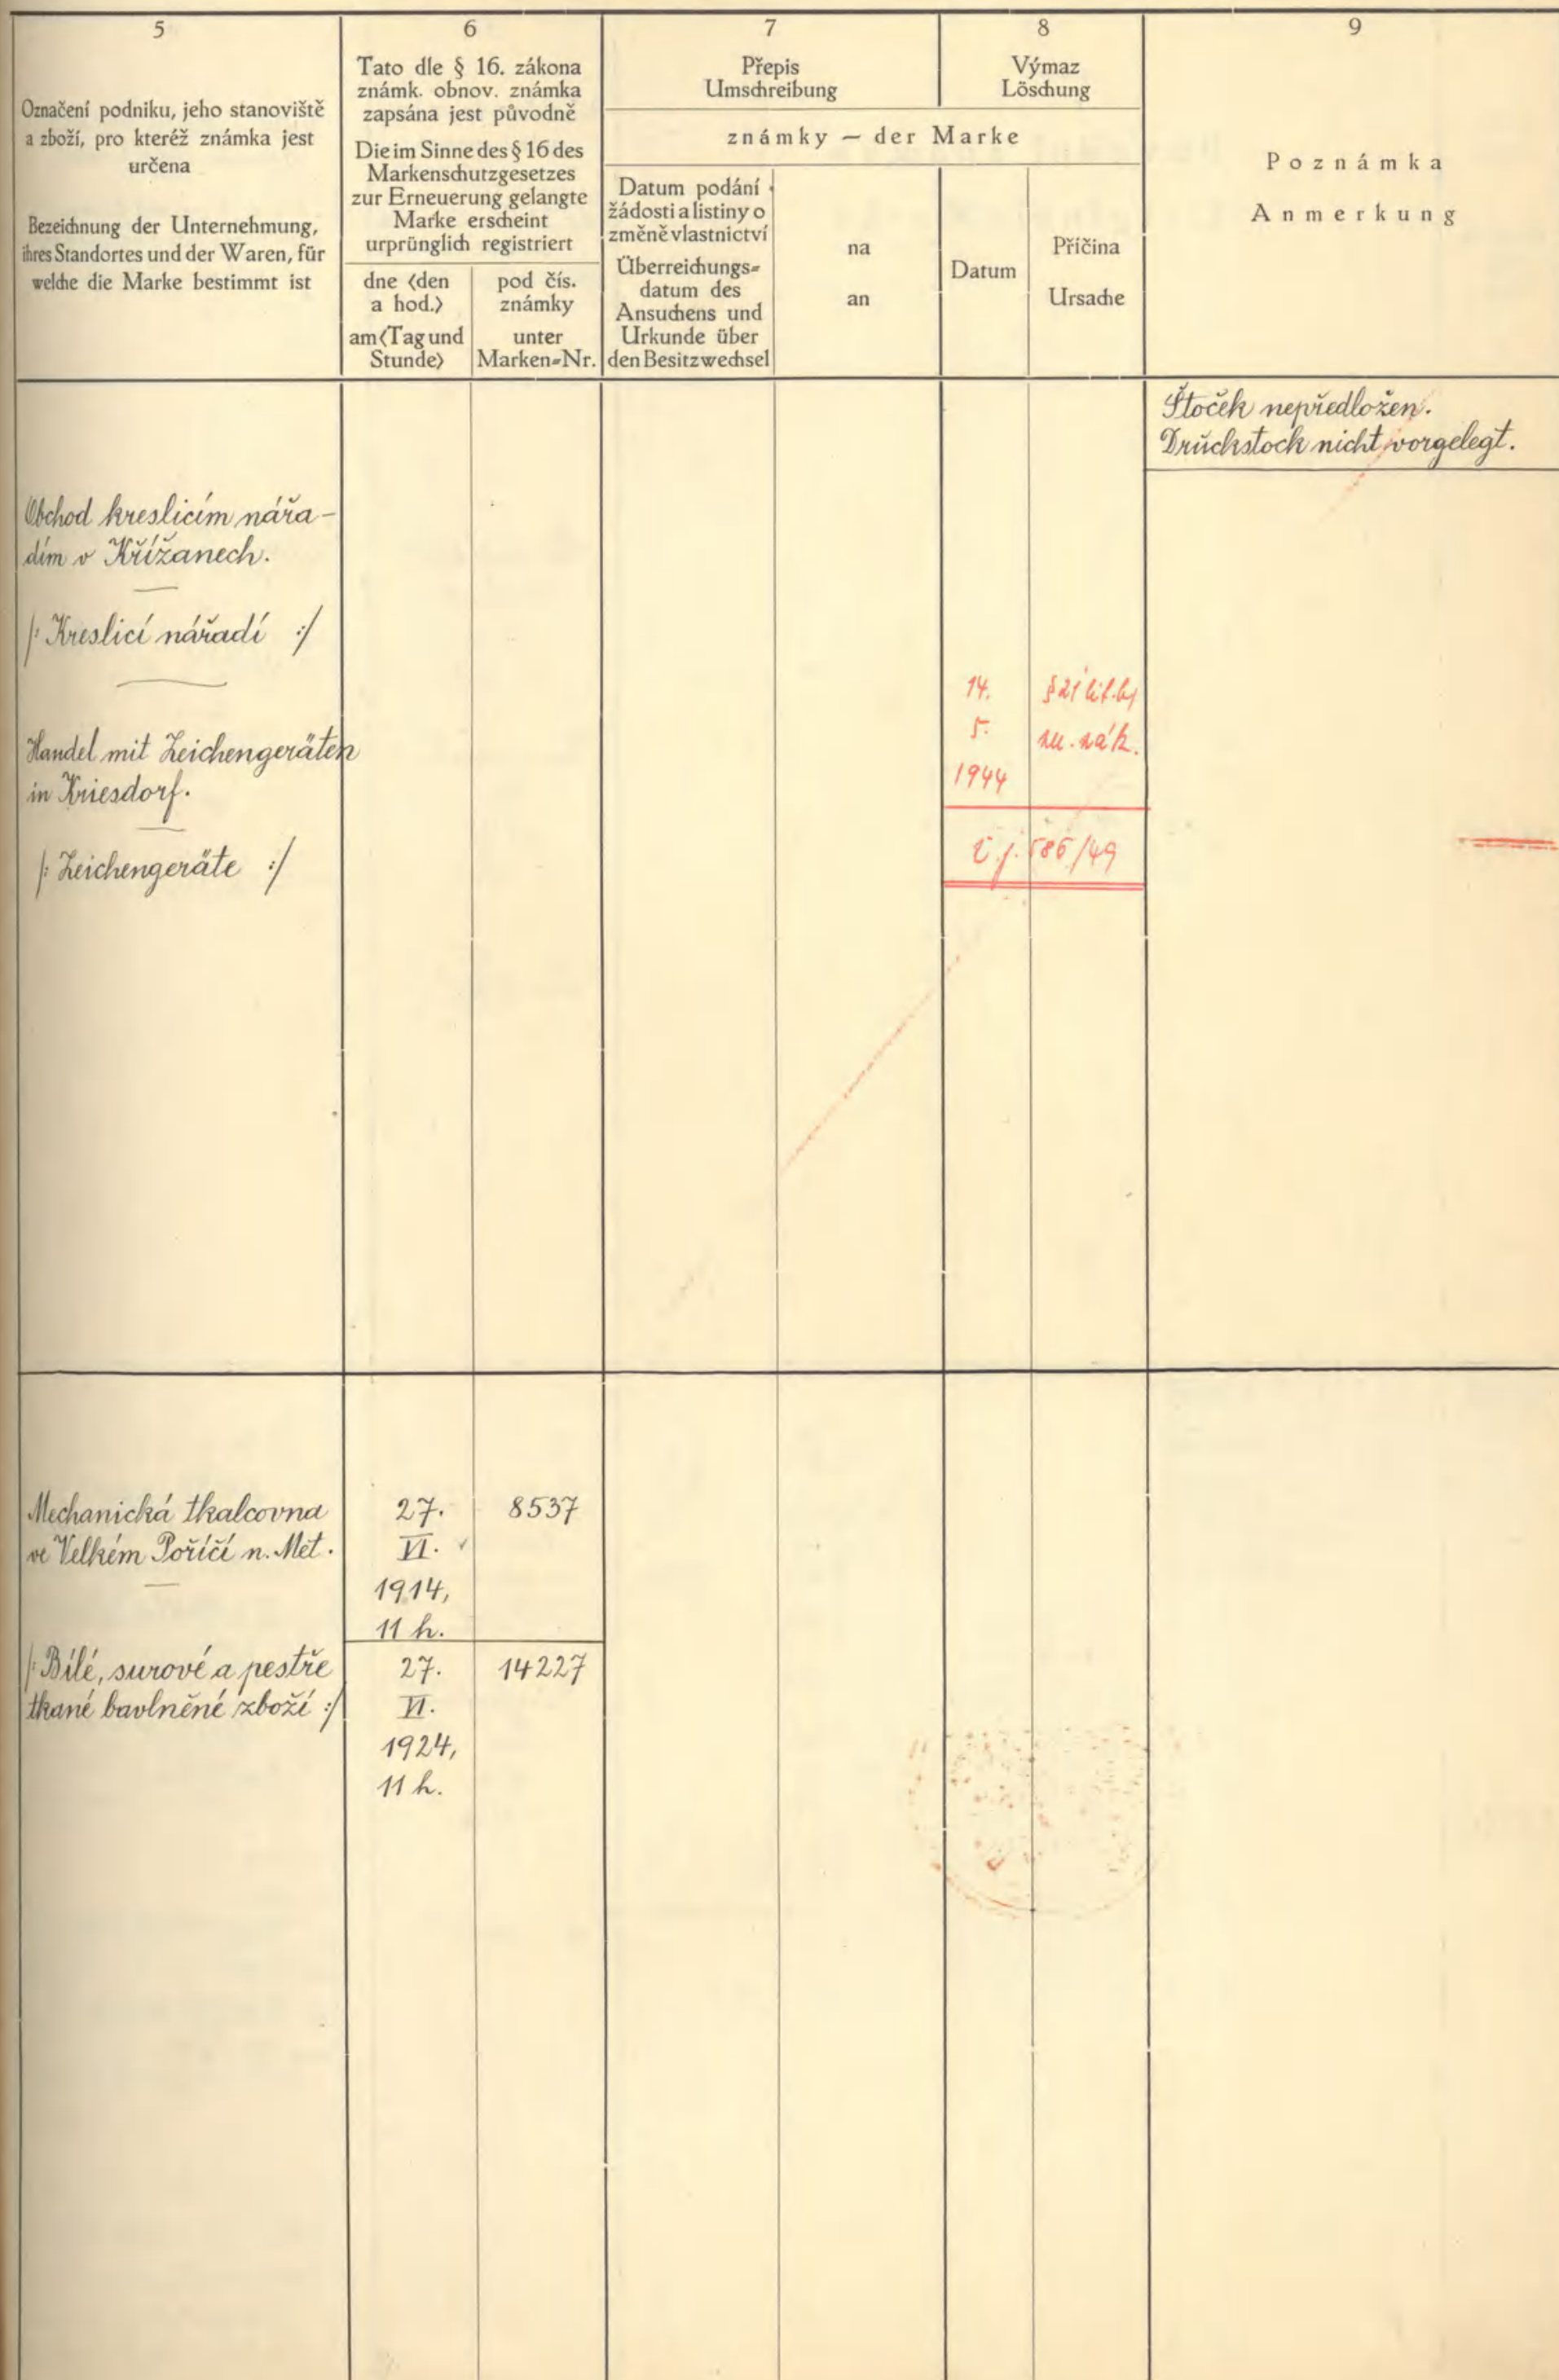 5
Označení podniku, jeho stanoviště
a zboží, pro kteréž známka jest
určena
Bezeichnung der Unternehmung,
ihres Standortes und der Waren, für
welche die Marke bestimmt ist
6
Tato dle § 16. zákona
známk. obnov. známka
zapsána jest původně
Die im Sinne des § 16 des
Markenschutzgesetzes
zur Erneuerung gelangte
Marke erscheint
urprünglich registriert
dne (den
a hod.)
am (Tag und
Stunde)
pod čís.
známky
unter
Marken-Nr.
7
Přepis
Umschreibung
8
Výmaz
Löschung
známky — der Marke
Datum podání
žádosti a listiny o
změně vlastnictví
Überreichungs-
datum des
Ansuchens und
Urkunde über
den Besitzwechsel
na
an
Datum
Příčina
Ursache
9
Poznámka
Anmerkung
Štoček nepředložen.
Druckstock nicht vorgelegt.
Obchod kreslicím nářa-
dím v Křižanech.
/: Kreslicí nářadí :/
Handel mit Zeichengeräten
in Kriesdorf.
/: Zeichengeräte :/
14.
5.
1944
§ 21 lit. b)
zn. zák.
č. j. 586/49
Mechanická tkalcovna
ve Velkém Poříčí n. Met.
/: Bílé, surové a pestře
tkané bavlněné zboží :/
27.
VI.
1914,
11 h.
8537
27.
VI.
1924,
11 h.
14227